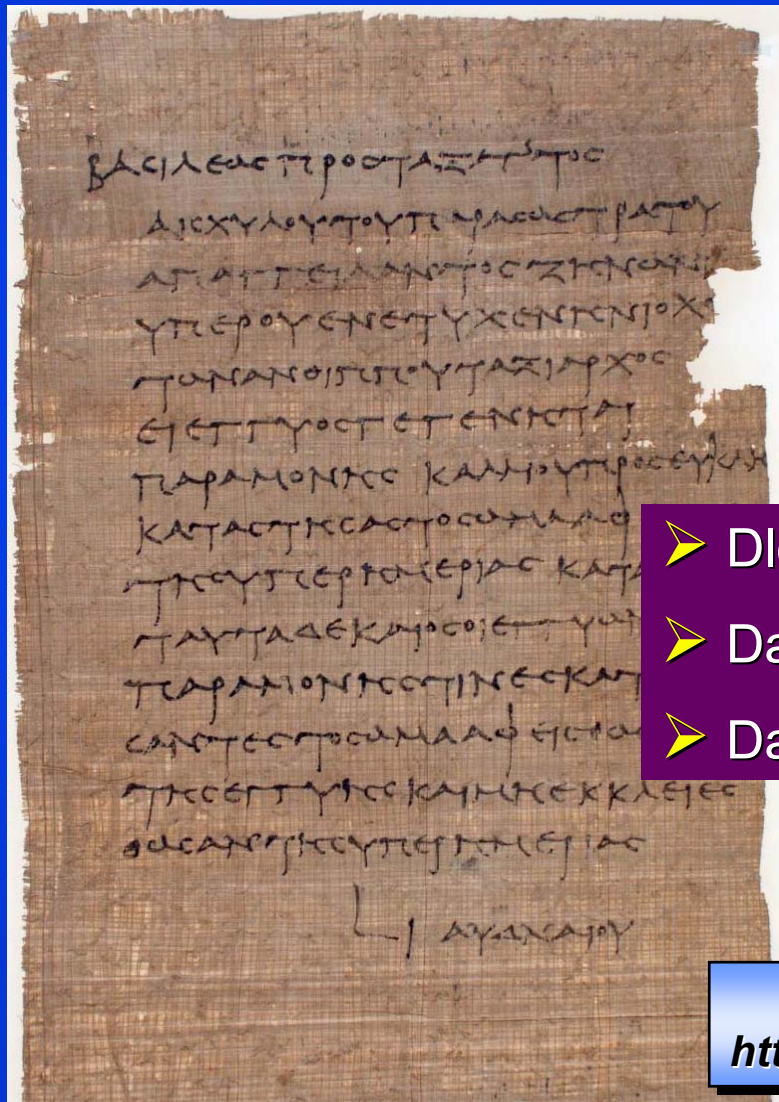 βασιλεως προσταξαντος
αισχυλου του παρα σωστρατου
απαγγειλαντος ζηνωνι
υπερ ου ενετυχεν ηνιοχο
των ανθιππου ταξιαρχος
ει εγγυος γεγενηται
παραμονης καλλιου προς ευκλην
καταστησας το σωμα αφ
της υπερημεριας κατα
ταυτα δε και οσοι εγγυων
παραμονης τινες κατ
σαντες το σωμα αφεισθω
της εγγυης και μη εκκλειεσ
θωσαν της υπερημεριας
Lι αυδναιου
Dl
Da
Da
htt